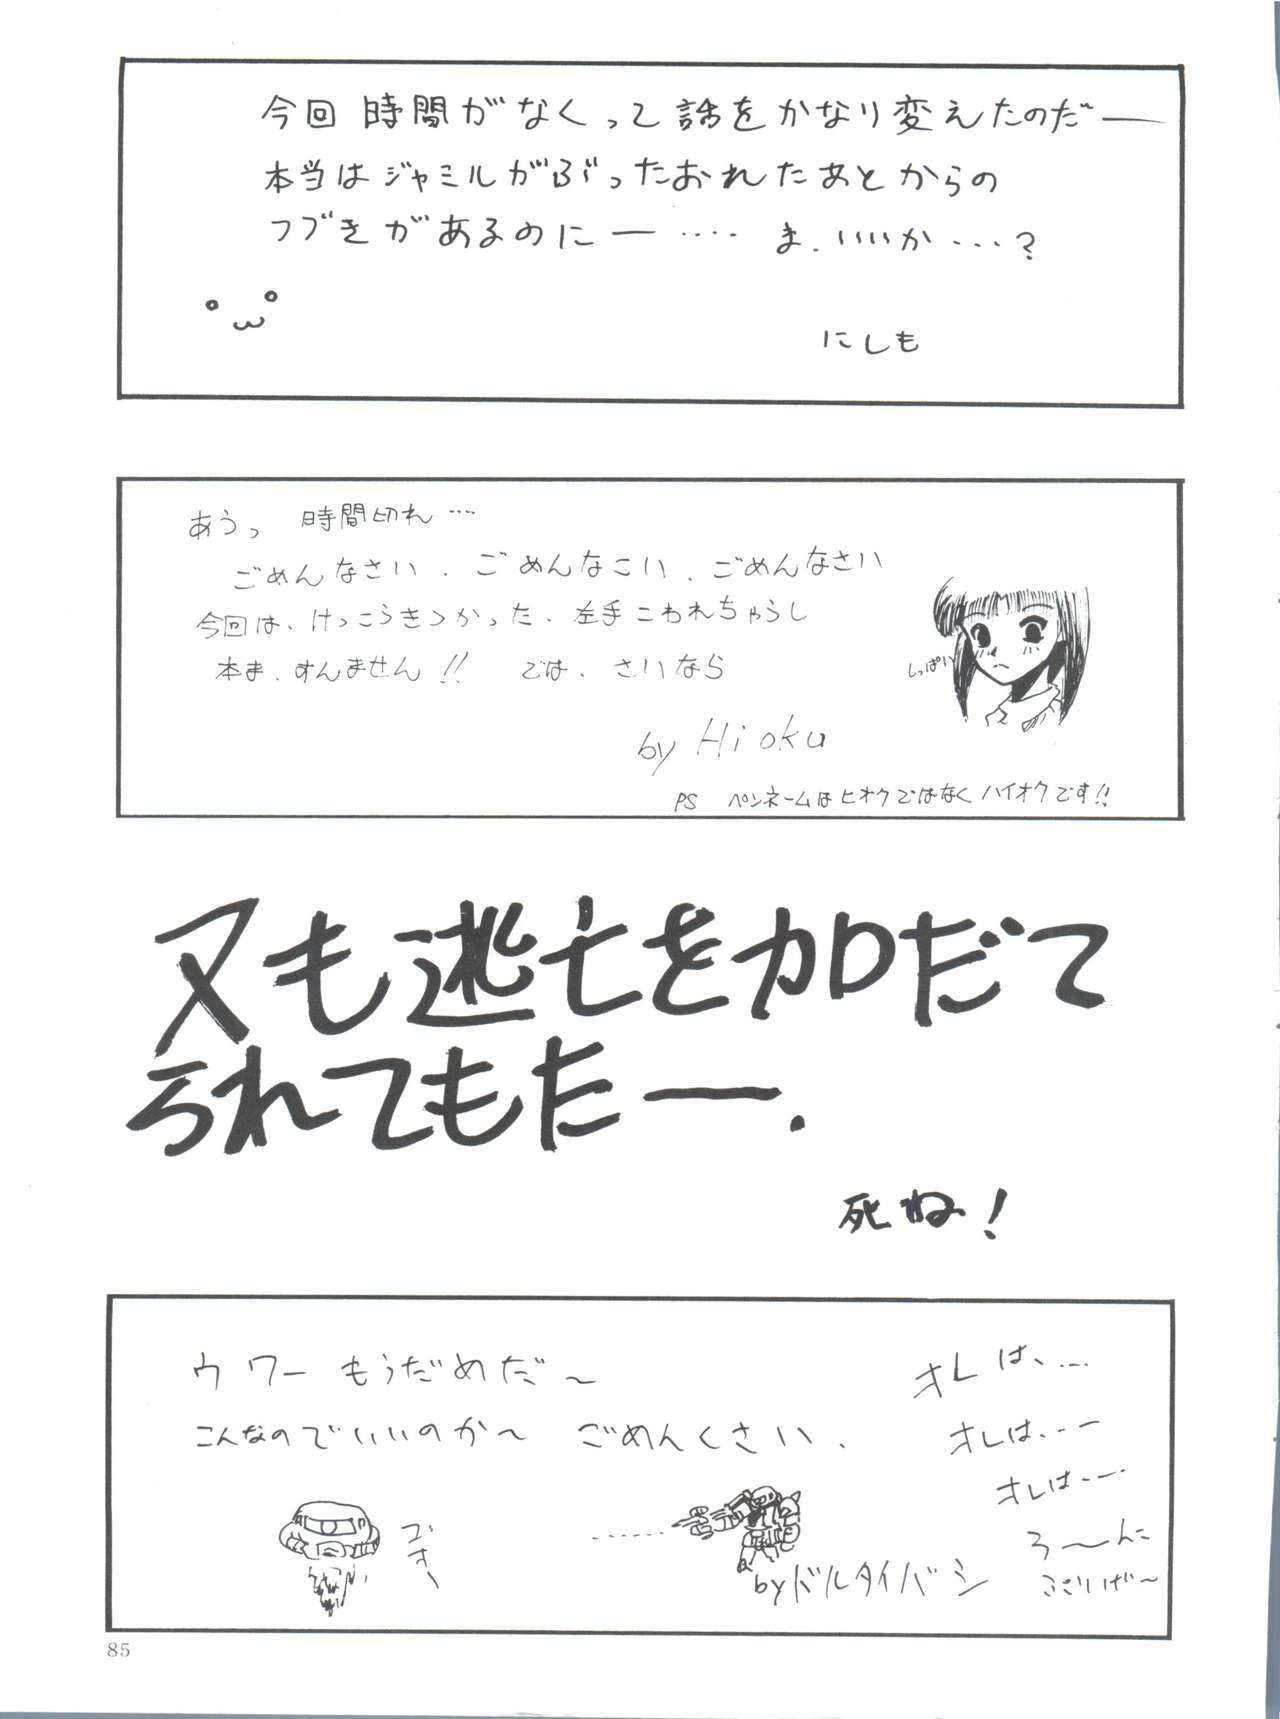 今回 時間がなくって話をかなり変えたのだー
本当はジャミルがぶったおれたあとからの
つづきがあるのにー‥‥ ま、いいか…?
にしも
あうっ 時間切れ…
ごめんなさい、ごめんなこい、ごめんなさい
今回は、けっこうきつかった、左手こわれちゃうし
本ま、すんません!! では、さいなら
しっぱい
by Hioku
PS ペンネームはヒオクではなくハイオクです!!
又も逃亡をカロだて
られてもたー.
死ね!
ウワー もうだめだ〜
こんなのでいいのか〜 ごめんくさい.
オレは、…
オレは、--
オレは---
ろ〜んに
ゴオ〜
byドルタイバシ
85